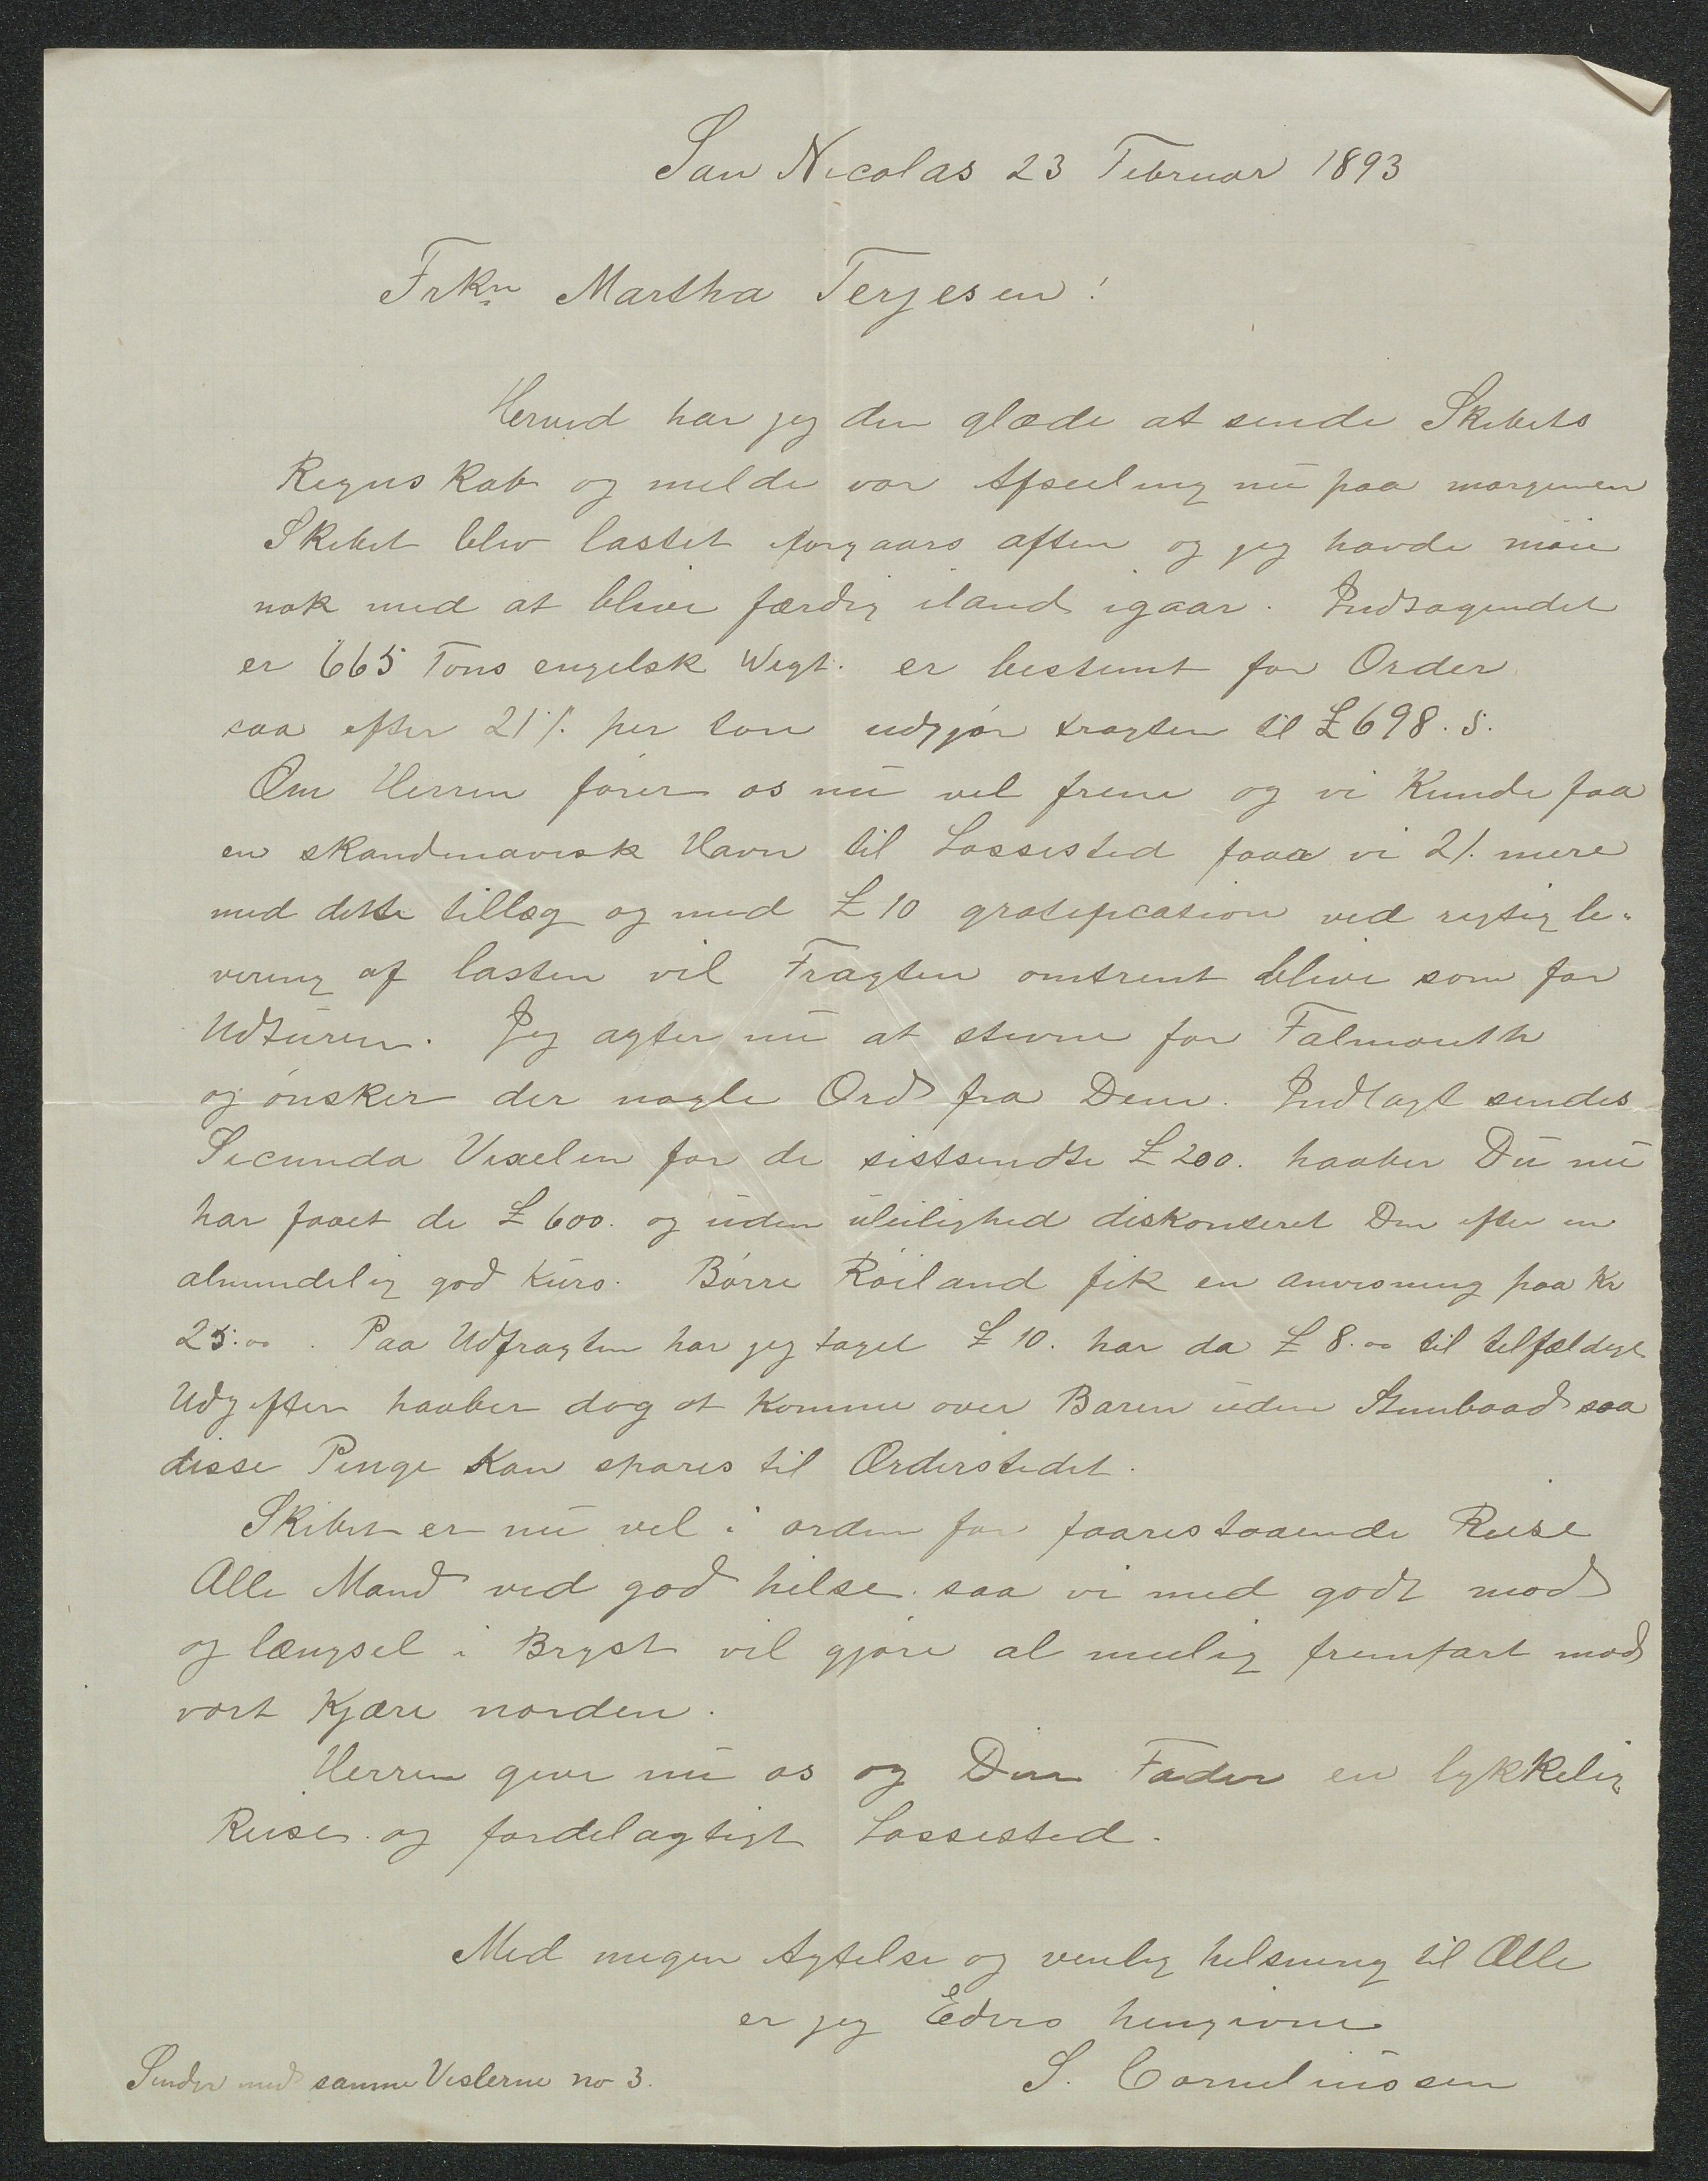 San Nicolas 23 Februar 1893
Frkn Martha Terjesen!
Herved har jeg den glæde at sende Skibets
Regnskab og melde vor Afseiling nu paa morgenen
Skibet blev lastet forgaars aften og jeg havde möie
nok med at blive færdig iland igaar. Indtagendet
er 665 Tons engelsk Vegt. er bestemt for Order
saa efter 21/. per ton udgjør fragten til £698.5.
Om Herren fører os nu vel frem og vi Kunde faa
en skandinavisk Havn til Lossested faar vi 2/. mere
med dette tillæg og med £10 gratification ved rigtig le-
vering af lasten vil Fragten omtrent blive som for
Udturen. Jeg agter nu at stevne for Falmouth
og ønsker der nogle Ord fra Dem. Indlagt sendes
Secunda Vexelen for de sistsendte £200. haaber Du nu
har faaet de £600. og uden uleilighed diskonteret Dem efter en
almindelig god Kurs. Börre Röiland fik en anvisning paa Kr
25.00. Paa Udfragten har jeg taget £10. har da £8.00 til tilfældige
Udgifter haaber dog at komme over Baren uden Stimbaad saa
disse Penge Kan spares til Orderstedet.
Skibet er nu vel i orden for foarestaaende Reise
Alle Mand ved god helse. saa vi med godt mod
og længsel i Bryst vil gjøre al mulig fremfart mod
vort Kjære norden.
Herren give nu os og Din Fader en lykkelig
Reise. og fordelagtigt Lossested.
Med megen Agtelse og venlig helsning til Alle
er jeg Eders hengivne
S. Corneliussen
Sender med samme Vexlerne no 3.